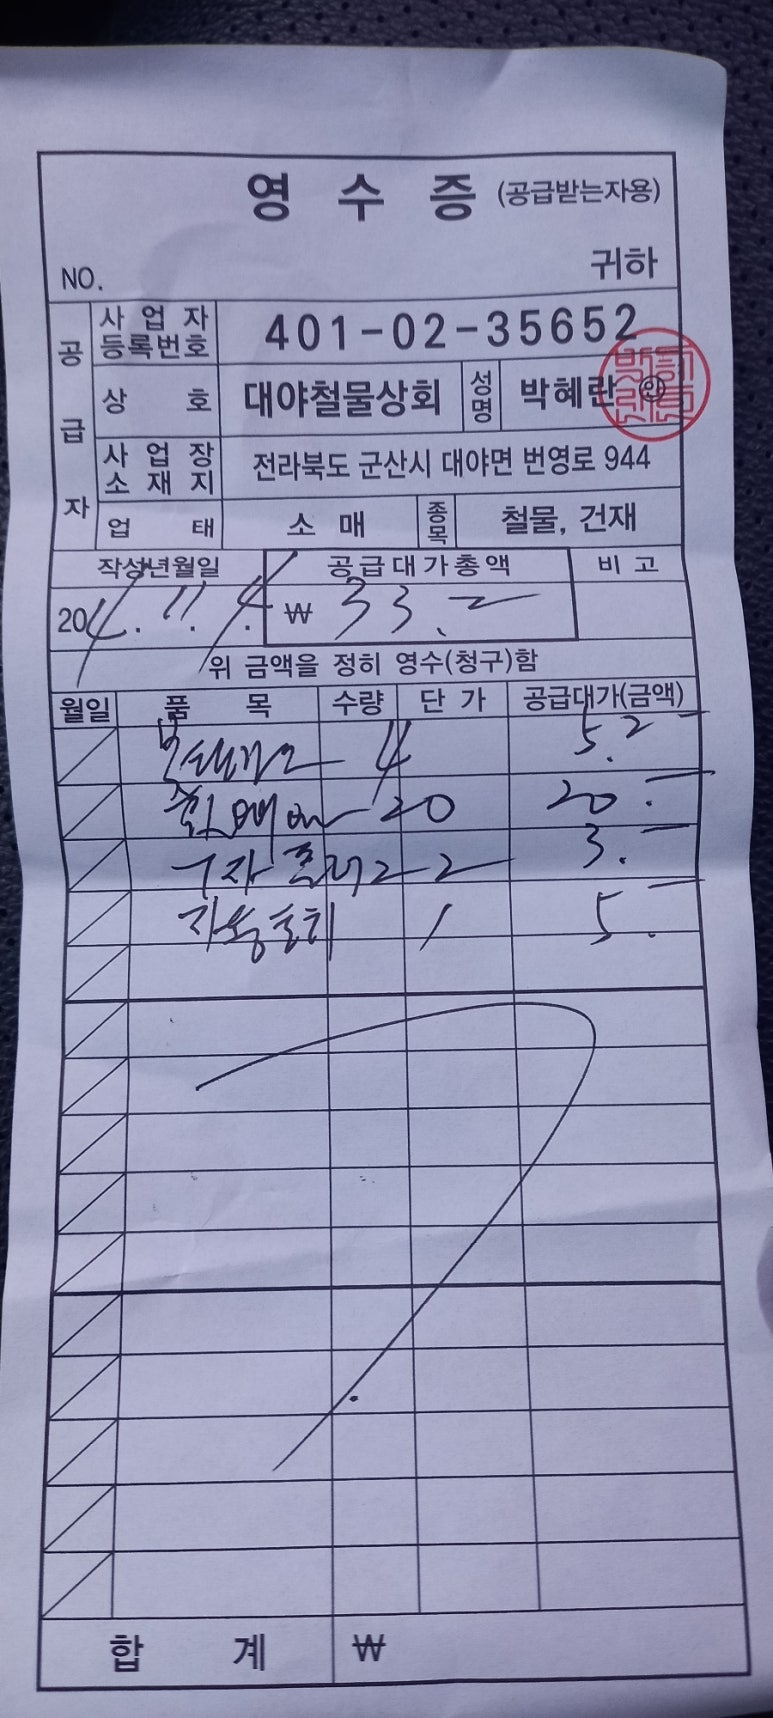 영 수 증 (공급받는자용)
NO. 귀하
공급자
사업자등록번호 401-02-35652
상호 대야철물상회 성명 박혜란 ㊞
사업장소재지 전라북도 군산시 대야면 번영로 944
업태 소매 종목 철물, 건재
작성년월일 공급대가총액 비고
20 4. 11. 4. ₩ 33.-
위 금액을 정히 영수(청구)함
월일 품목 수량 단가 공급대가(금액)
4 5.-
20 20.-
2 3.-
1 5.-
합계 ₩